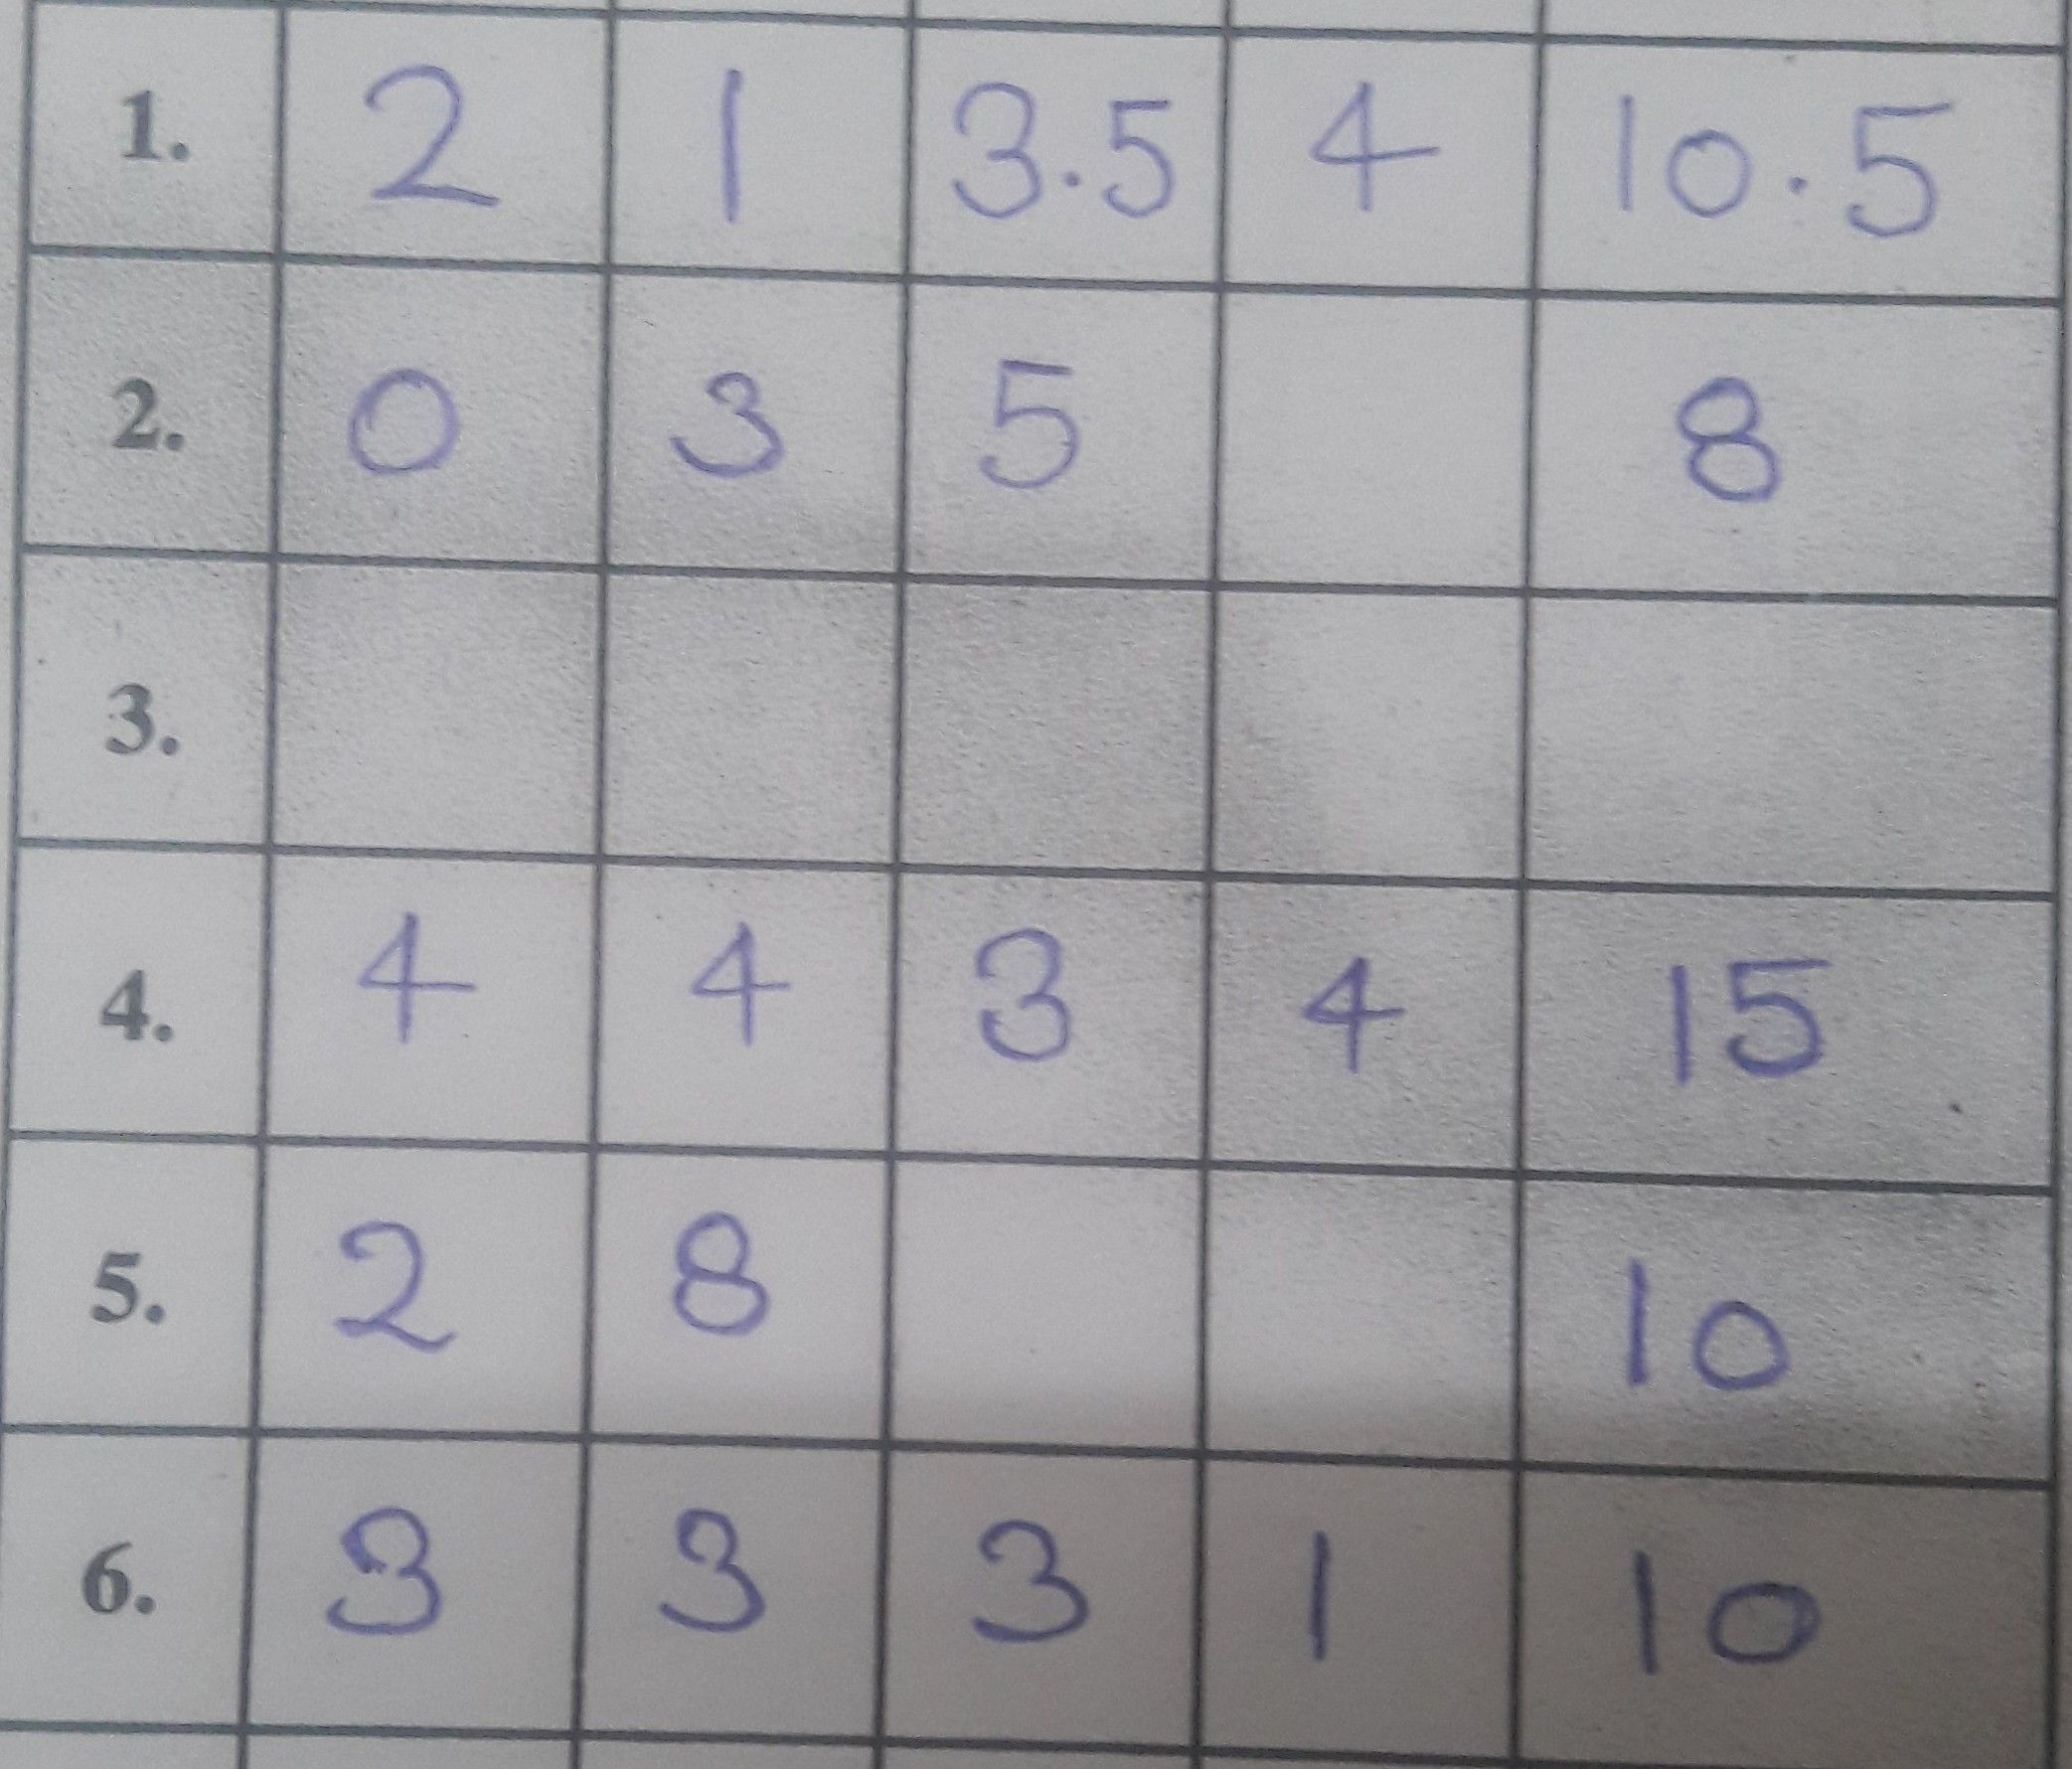 1. 2 1 3.5 4 10.5
2. 0 3 5 8
3.
4. 4 4 3 4 15
5. 2 8 10
6. 3 3 3 1 10